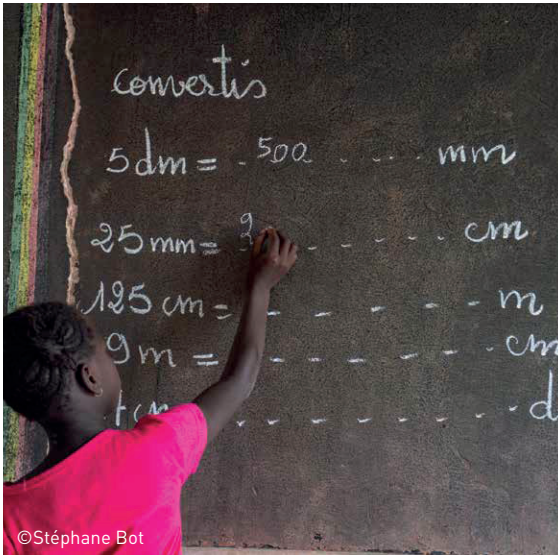 convertis
5 dm = . 500 . . . . mm
25 mm = 2 - - - - - cm
125 cm = - - - - - - m
9 m = - - - - - - cm
cm - - - - - - d
©Stéphane Bot